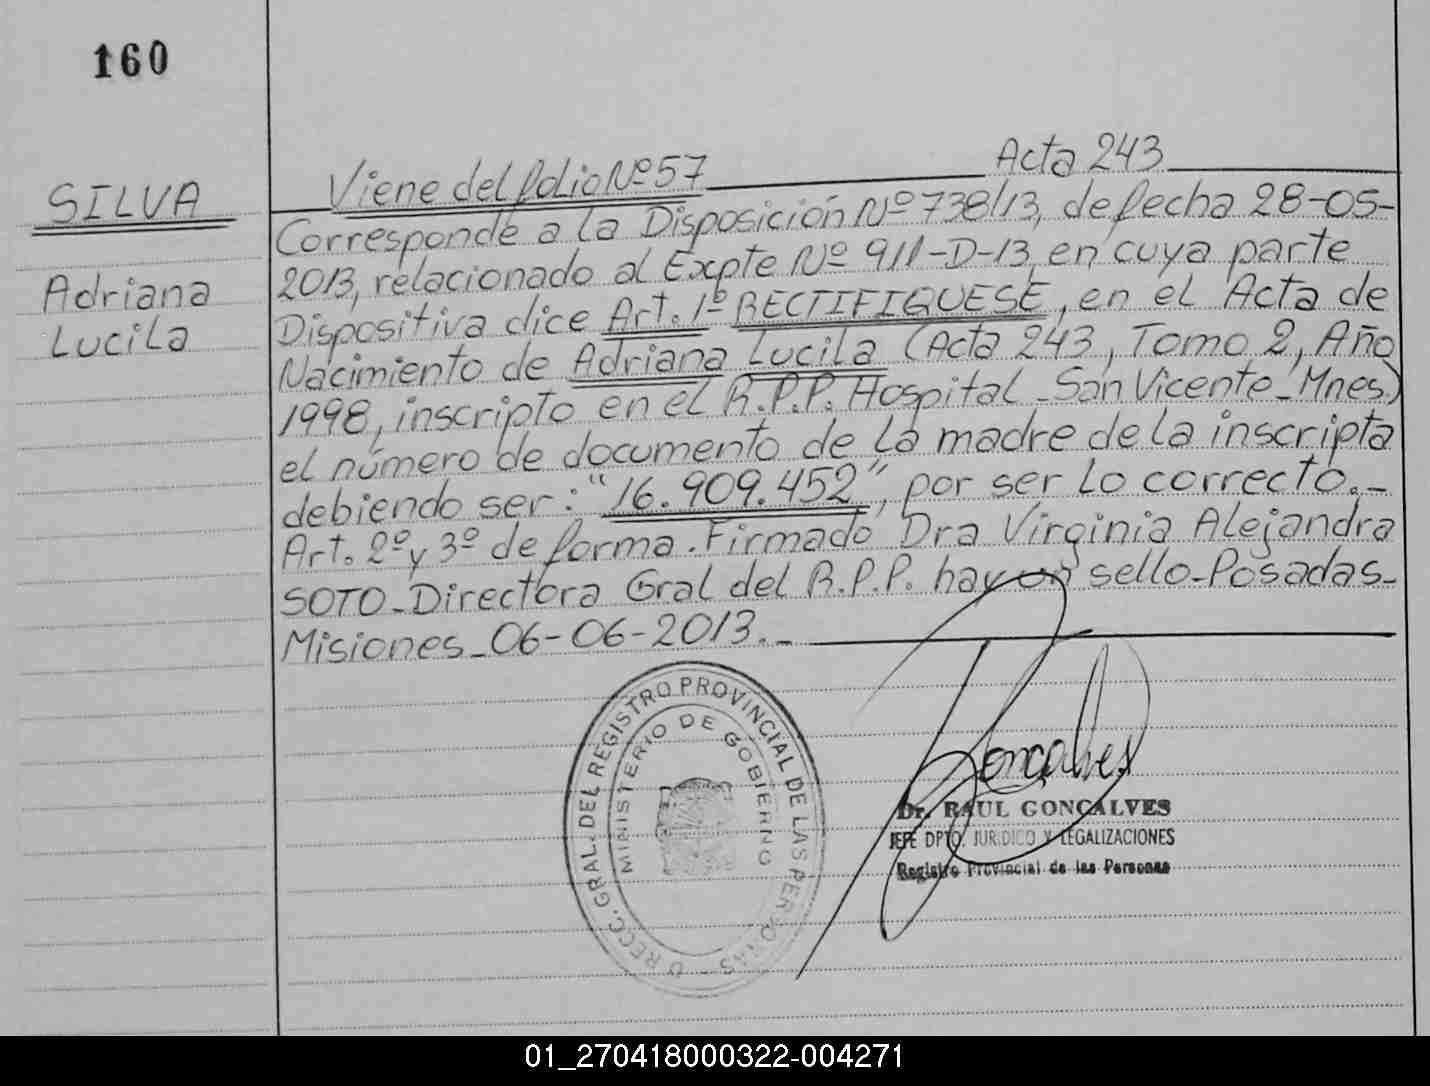 160
SILVA
Adriana
Lucila
Viene del folio Nº 57 Acta 243
Corresponde a la Disposición Nº 738/13, de fecha 28-05-
2013, relacionado al Expte Nº 911-D-13, en cuya parte
Dispositiva dice Art. 1º RECTIFIQUESE, en el Acta de
Nacimiento de Adriana Lucila (Acta 243, Tomo 2, Año
1998, inscripto en el R.P.P. Hospital - San Vicente - Mnes.)
el número de documento de la madre de la inscripta
debiendo ser: "16.909.452", por ser lo correcto.-
Art. 2º y 3º de forma. Firmado Dra Virginia Alejandra
SOTO - Directora Gral del R.P.P. hay un sello - Posadas -
Misiones - 06-06-2013.-
DIRECC. GRAL. DEL REGISTRO PROVINCIAL DE LAS PERSONAS
MINISTERIO DE GOBIERNO
Goncalves
Dr. RAUL GONCALVES
JEFE DPTO. JURIDICO Y LEGALIZACIONES
Registro Provincial de las Personas
01_270418000322-004271